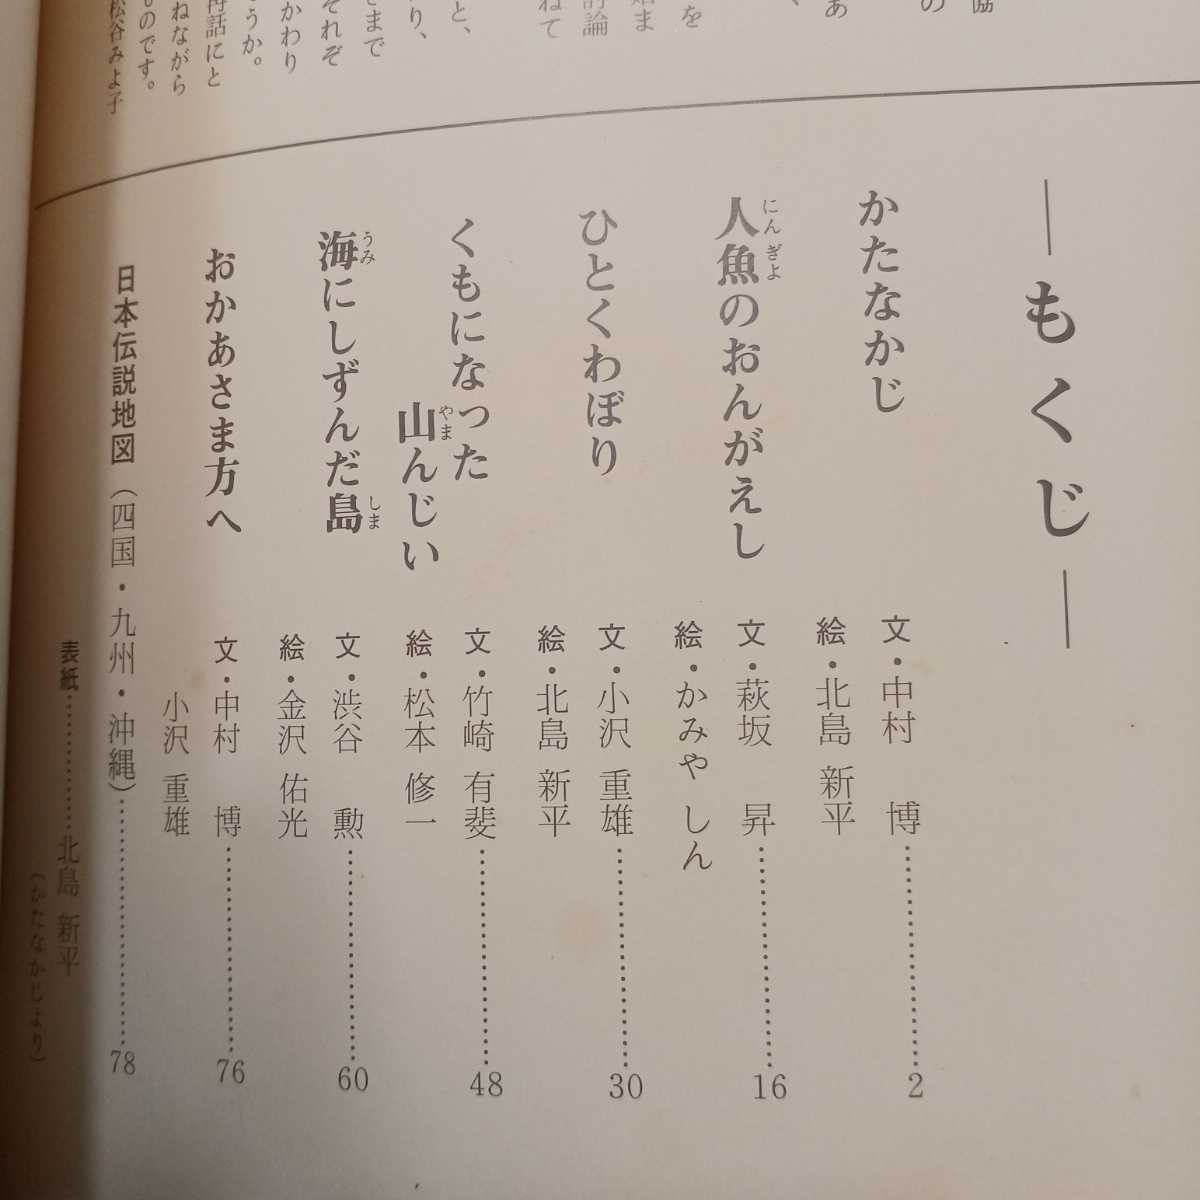 協
の
あ
を
始ま
討論
ねて
と、
り、
さまで
それぞ
かわり
うか。
再話にと
ねながら
ものです。
松谷みよ子
―もくじ―
かたなかじ
文・中村 博
絵・北島 新平
2
人魚のおんがえし
にんぎよ
文・萩坂 昇
絵・かみや しん
16
ひとくわぼり
文・小沢 重雄
絵・北島 新平
30
くもになった
山んじい
やま
文・竹崎 有斐
絵・松本 修一
48
海にしずんだ島
うみ
しま
文・渋谷 勲
絵・金沢 佑光
60
おかあさま方へ
文・中村 博
小沢 重雄
76
日本伝説地図(四国・九州・沖縄)
78
表紙…………北島 新平
(かたなかじより)